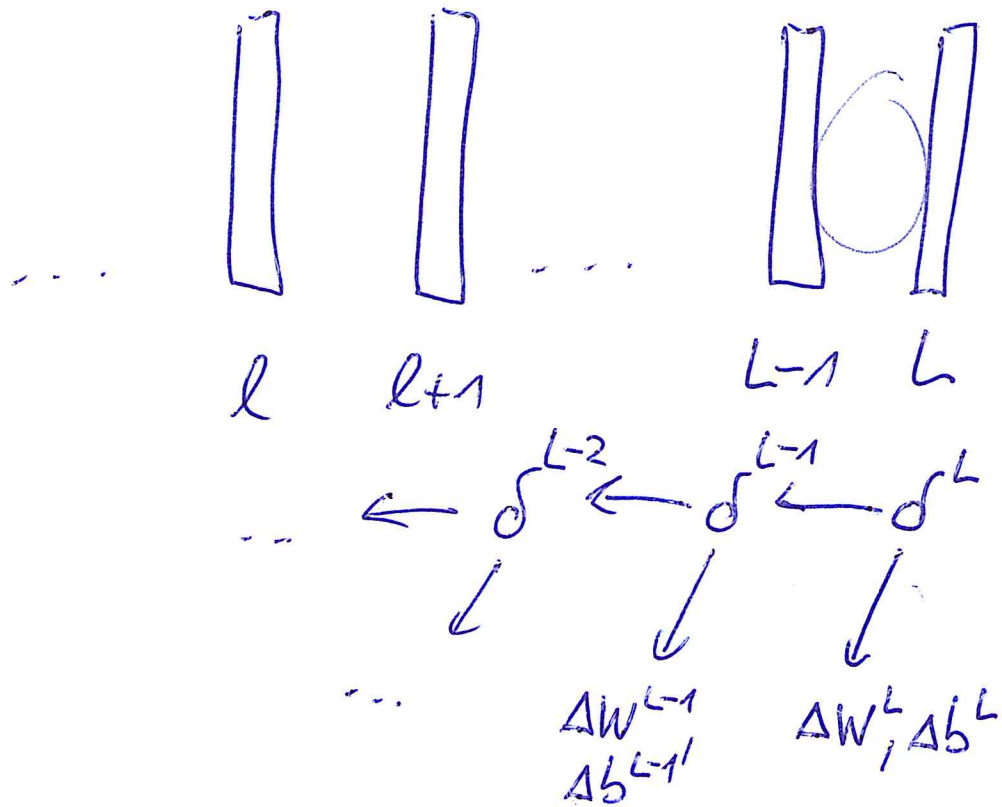 ... ...
l l+1 L-1 L
... ← δ^{L-2} ← δ^{L-1} ← δ^L
... ΔW^{L-1} ΔW^L, Δb^L
Δb^{L-1}